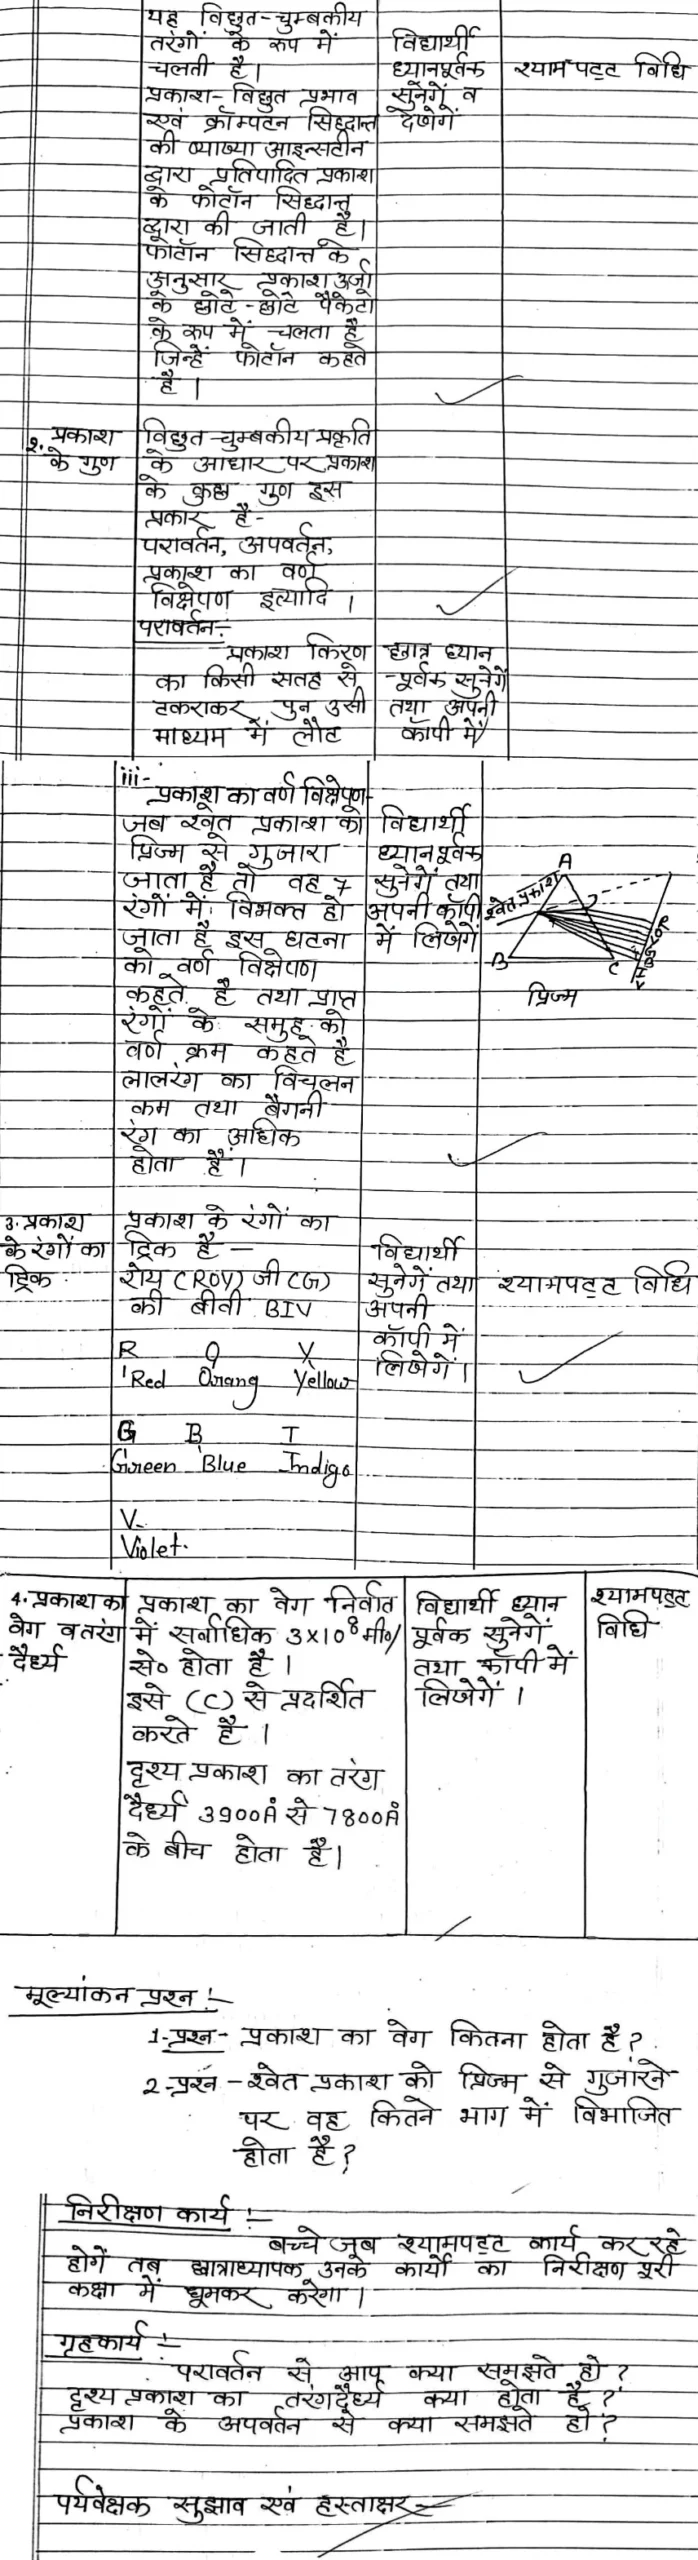 यह विद्युत-चुम्बकीय
तरंगों के रूप में
चलती है।
प्रकाश- विद्युत प्रभाव
एवं क्रॉम्पटन सिद्धान्त
की व्याख्या आइन्सटीन
द्वारा प्रतिपादित प्रकाश
के फोटॉन सिद्धान्त
द्वारा की जाती है।
फोटॉन सिद्धान्त के
अनुसार प्रकाश उर्जा
के छोटे-छोटे पैकेटो
के रूप में चलता है
जिन्हें फोटॉन कहते
है।
विद्यार्थी
ध्यानपूर्वक
सुनेगें व
देखेगें
श्यामपट्ट विधि
2. प्रकाश
के गुण
विद्युत-चुम्बकीय प्रकृति
के आधार पर प्रकाश
के कुछ गुण इस
प्रकार है-
परावर्तन, अपवर्तन,
प्रकाश का वर्ण
विक्षेपण इत्यादि।
परावर्तन:-
प्रकाश किरण
का किसी सतह से
टकराकर पुन उसी
माध्यम में लौट
छात्र ध्यान
-पूर्वक सुनेगें
तथा अपनी
कॉपी में
iii-
प्रकाश का वर्ण विक्षेपण-
जब श्वेत प्रकाश को
प्रिज्म से गुजारा
जाता है तो वह 7
रंगों में विभक्त हो
जाता है इस घटना
को वर्ण विक्षेपण
कहते है तथा प्राप्त
रंगों के समूह को
वर्ण क्रम कहते है
लालरंग का विचलन
कम तथा बैगनी
रंग का अधिक
होता है।
विद्यार्थी
ध्यानपूर्वक
सुनेगें तथा
अपनी कॉपी
में लिखेगें
A
श्वेत प्रकाश
B
C
R
O
Y
G
B
I
V
प्रिज्म
3. प्रकाश
के रंगों का
ट्रिक
प्रकाश के रंगों का
ट्रिक है -
रोय (ROY) जी (G)
की बीवी BIV
R O Y
Red Orang Yellow
G B I
Green Blue Indigo
V-
Violet.
विद्यार्थी
सुनेगें तथा
अपनी
कॉपी में
लिखेगें।
श्यामपट्ट विधि
4. प्रकाश का
वेग व तरंग
दैर्ध्य
प्रकाश का वेग निर्वात
में सर्वाधिक 3×10⁸ मी०/
से० होता है।
इसे (C) से प्रदर्शित
करते है।
दृश्य प्रकाश का तरंग
दैर्ध्य 3900Å से 7800Å
के बीच होता है।
विद्यार्थी ध्यान
पूर्वक सुनेगें
तथा कॉपी में
लिखेगें।
श्यामपट्ट
विधि
मूल्यांकन प्रश्न:-
1-प्रश्न- प्रकाश का वेग कितना होता है?
2-प्रश्न - श्वेत प्रकाश को प्रिज्म से गुजारने
पर वह कितने भाग में विभाजित
होता है?
निरीक्षण कार्य:-
बच्चे जब श्यामपट्ट कार्य कर रहे
होगें तब छात्राध्यापक उनके कार्यो का निरीक्षण पूरी
कक्षा में घूमकर करेगा।
गृहकार्य:-
परावर्तन से आप क्या समझते हो?
दृश्य प्रकाश का तरंगदैर्ध्य क्या होता है?
प्रकाश के अपवर्तन से क्या समझते हो?
पर्यवेक्षक सुझाव एवं हस्ताक्षर-